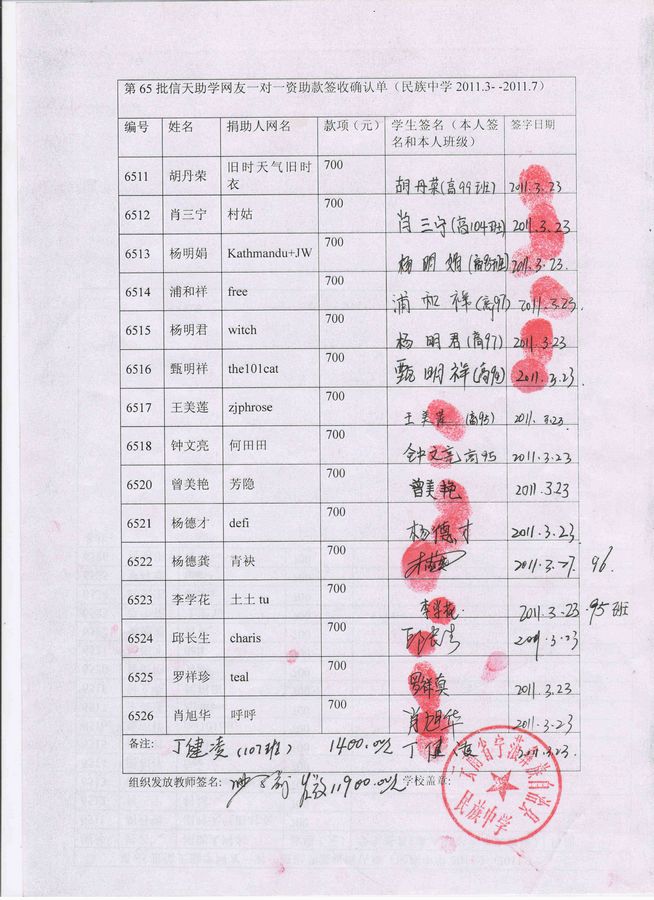 第 65 批信天助学网友一对一资助款签收确认单（民族中学 2011.3- -2011.7）
编号 姓名 捐助人网名 款项（元） 学生签名（本人签名和本人班级） 签字日期
6511 胡丹荣 旧时天气旧时衣 700 胡丹荣(高99班) 2011.3.23
6512 肖三宁 村姑 700 肖三宁(高104班) 2011.3.23
6513 杨明娟 Kathmandu+JW 700 杨明娟 2011.3.23.
6514 浦和祥 free 700 浦和祥(高97) 2011.3.23.
6515 杨明君 witch 700 杨明君(高97) 2011.3.23
6516 甄明祥 the101cat 700 甄明祥 2011.3.23
6517 王美莲 zjphrose 700 王美莲 (高95) 2011.3.23.
6518 钟文亮 何田田 700 钟文亮高95 2011.3.23
6520 曾美艳 芳隐 700 曾美艳 2011.3.23
6521 杨德才 defi 700 杨德才 2011.3.23.
6522 杨德龚 青袂 700 2011.3.27. 96.
6523 李学花 土土 tu 700 李学花 2011.3.23.95班
6524 邱长生 charis 700 邱长生 2011.3.23
6525 罗祥珍 teal 700 2011.3.23
6526 肖旭华 呼呼 700 肖旭华 2011.3.23
备注: 丁健凌(107班) 1400.00元 丁健凌 2011.3.23.
组织发放教师签名: 发放11900.00元 学校盖章:
云南省宁蒗彝族自治县
民族中学